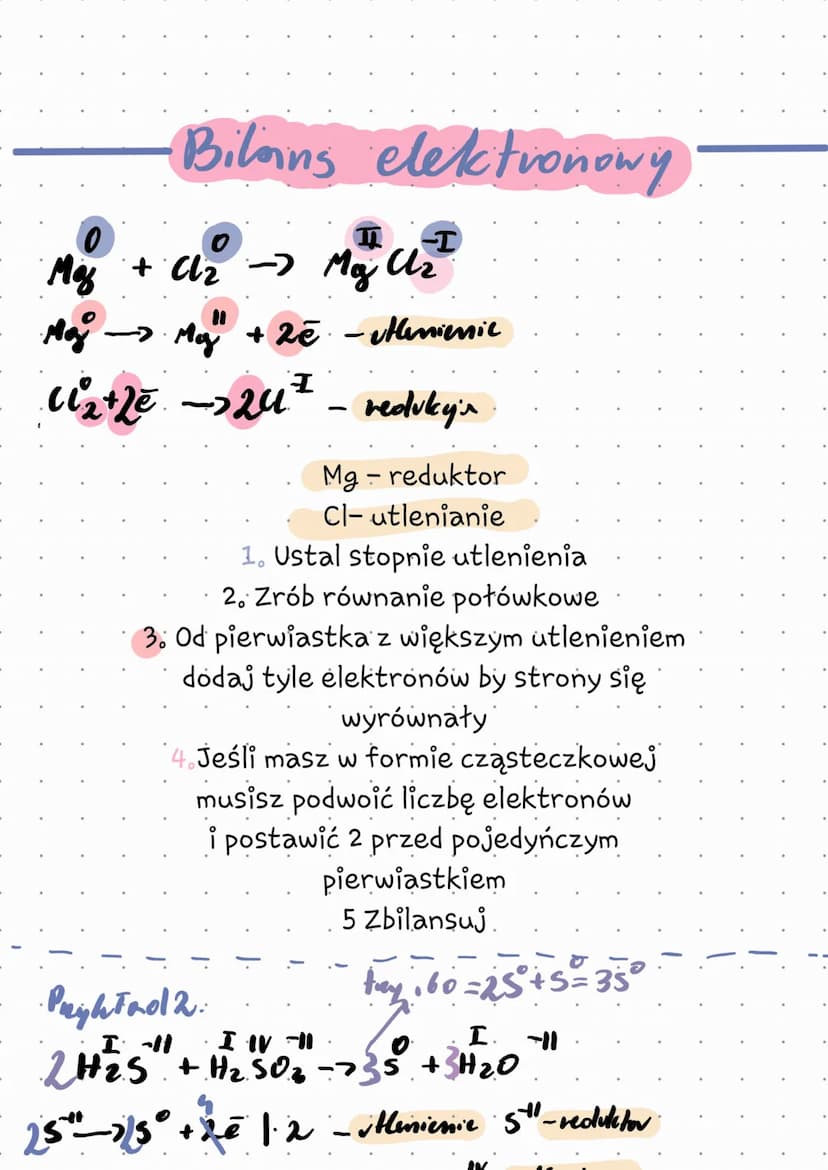 Bilans elektronowy
Mg⁰ + Cl₂⁰ → Mgᴵᴵ Cl₂⁻ᴵ
Mg⁰ → Mgᴵᴵ + 2ē – utlenienie
Cl₂⁰ + 2ē → 2Cl⁻ᴵ – redukcja
Mg – reduktor
Cl– utlenianie
1. Ustal stopnie utlenienia
2. Zrób równanie połówkowe
3. Od pierwiastka z większym utlenieniem
dodaj tyle elektronów by strony się
wyrównały
4. Jeśli masz w formie cząsteczkowej
musisz podwoić liczbę elektronów
i postawić 2 przed pojedyńczym
pierwiastkiem
5 Zbilansuj
bo = 2S⁰ + S⁰ = 3S⁰
Przykład 2.
2H₂ᴵS⁻ᴵᴵ + H₂ᴵSᴵⱽO₃⁻ᴵᴵ → 3S⁰ + 3H₂ᴵO⁻ᴵᴵ
2S⁻ᴵᴵ → 2S⁰ + 4ē |·2 – utlenienie S⁻ᴵᴵ – reduktor